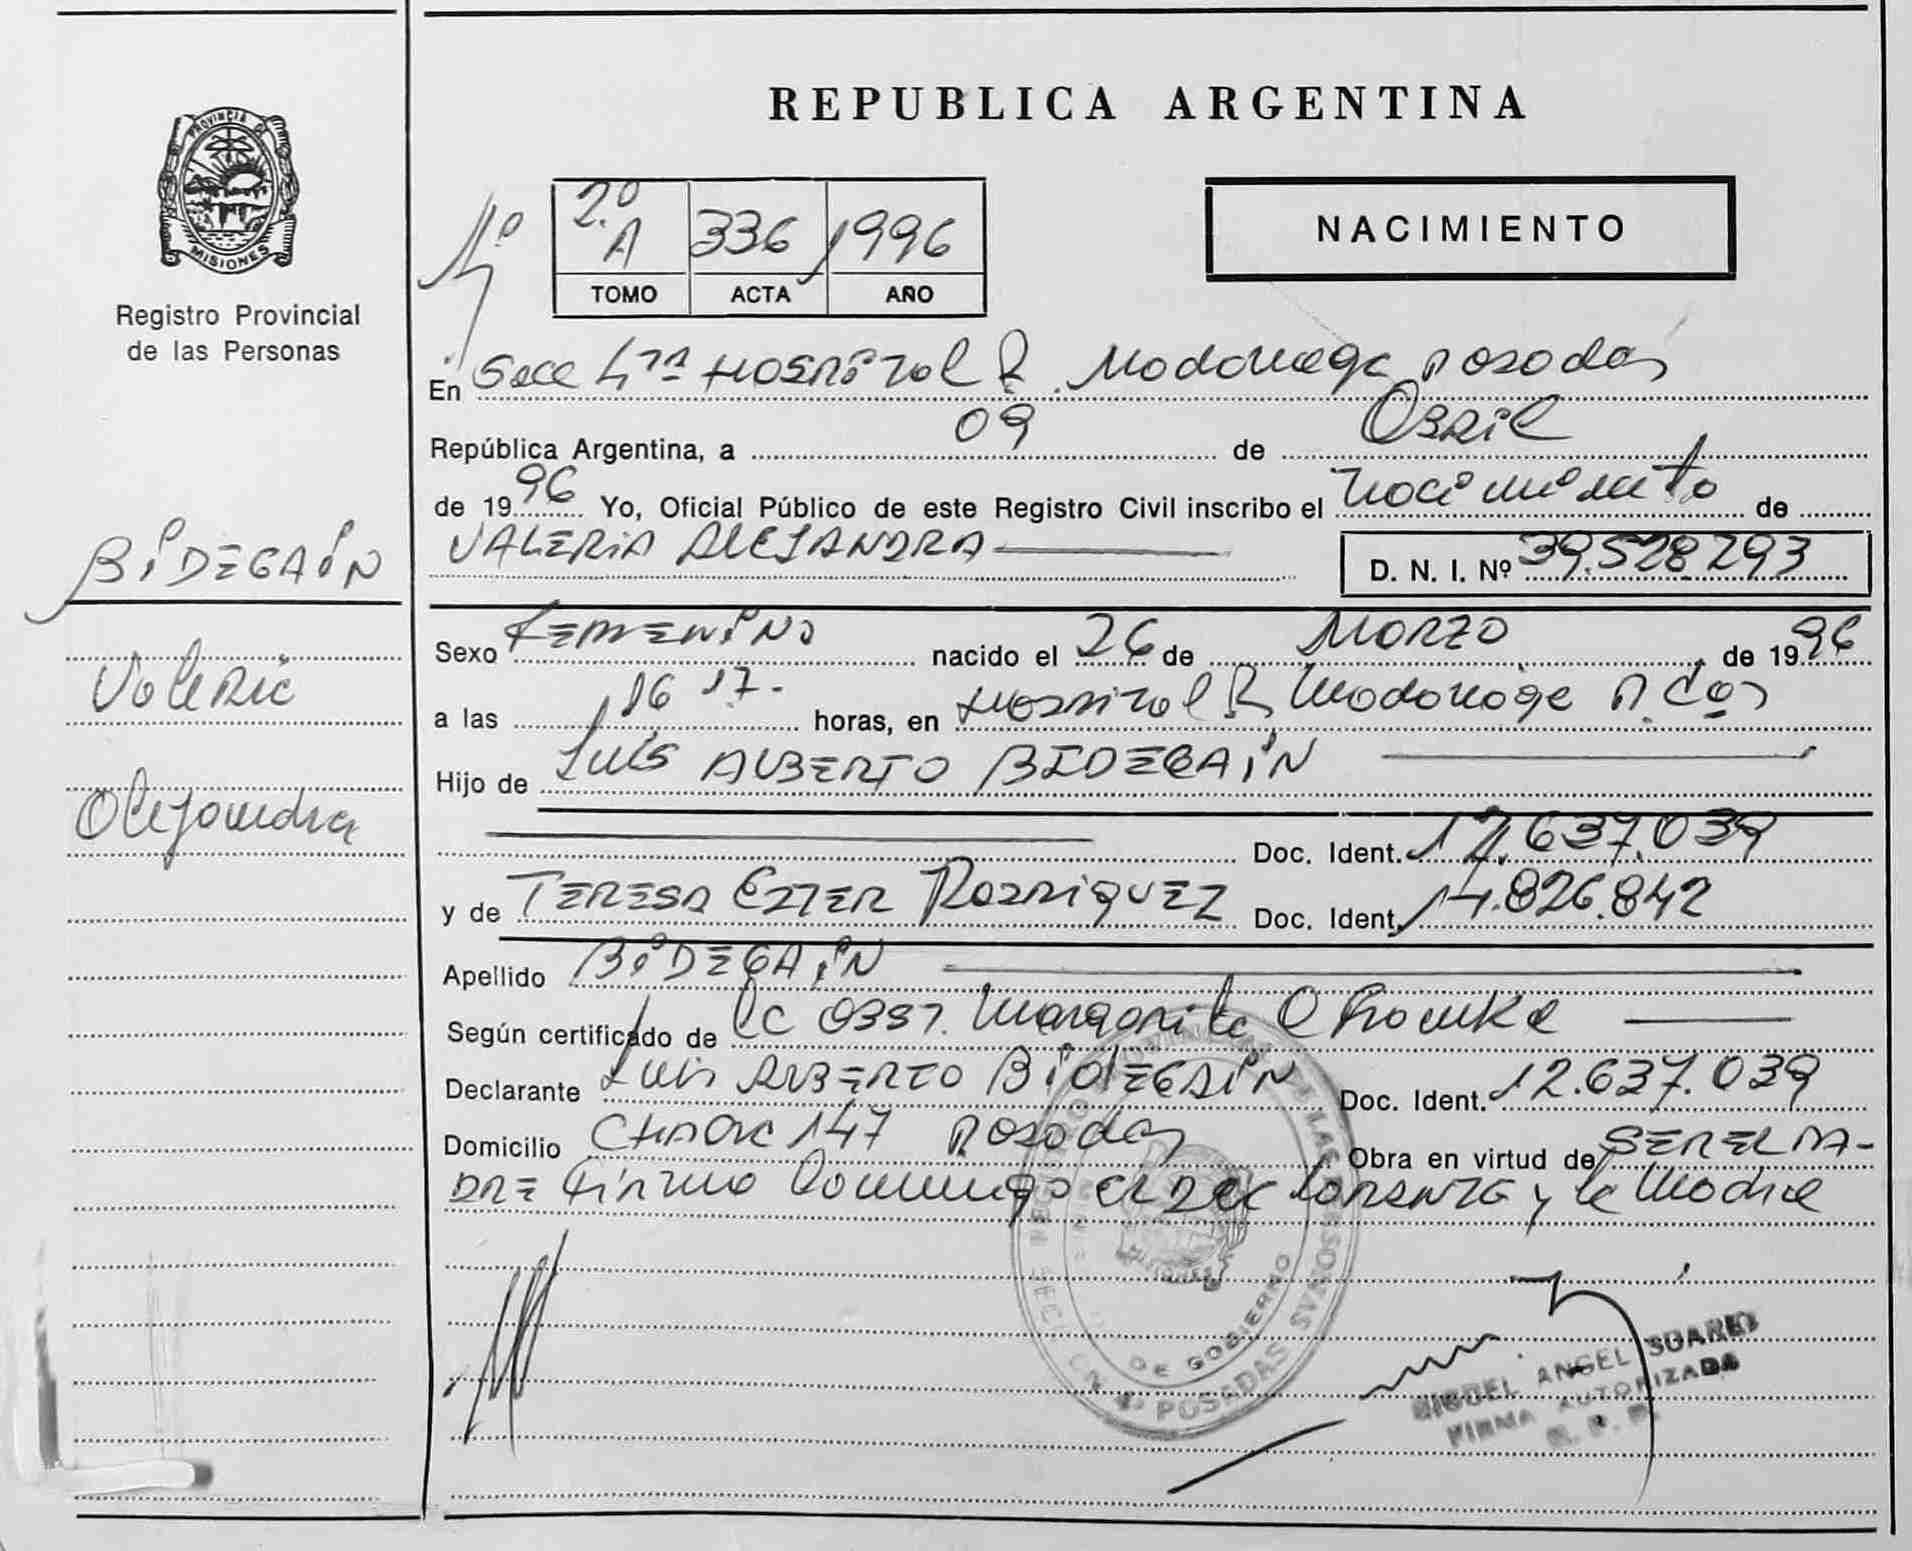 REPUBLICA ARGENTINA
PROVINCIA DE
MISIONES
Registro Provincial
de las Personas
2º A 336 1996
TOMO ACTA AÑO
NACIMIENTO
En Secc 4ta Hospital R. Madariaga Posadas
República Argentina, a 09 de Abril
de 1996 Yo, Oficial Público de este Registro Civil inscribo el nacimiento de
VALERIA ALEJANDRA
D. N. I. Nº 39.528.293
BIDEGAIN
Valeria
Alejandra
Sexo FEMENINO nacido el 26 de MARZO de 1996
a las 16 17. horas, en Hospital R. Madariaga P.das
Hijo de LUIS ALBERTO BIDEGAIN
Doc. Ident. 12.637.039
y de TERESA ESTER RODRIGUEZ Doc. Ident. 14.826.842
Apellido BIDEGAIN
Según certificado de la Obst. Margarita
Declarante LUIS ALBERTO BIDEGAIN Doc. Ident. 12.637.039
Domicilio 147 Posadas Obra en virtud de SER EL PA-
DRE Firma el y la Madre
DE LAS PERSONAS
DE GOBIERNO
POSADAS
MISIONES
MIGUEL ANGEL SUAREZ
FIRMA AUTORIZADA
R. P. P.